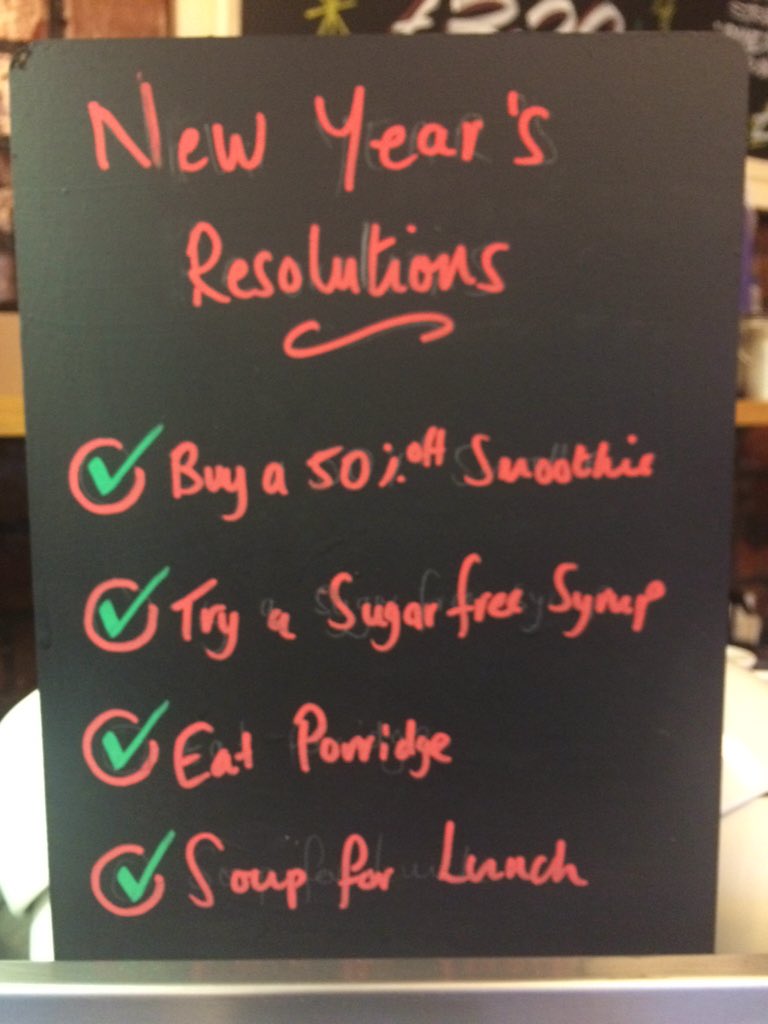 New Year's
Resolutions
Buy a 50% off Smoothie
Try a Sugar free Syrup
Eat Porridge
Soup for Lunch